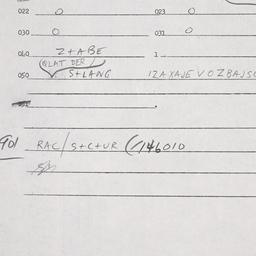 022 O 023 O
030 O 031 O
040 Z+ABE 1
GLAT DER /
050 S+LANG IZAXAJE VOZBAJSC
901 RAC/S+C+UR (/146010